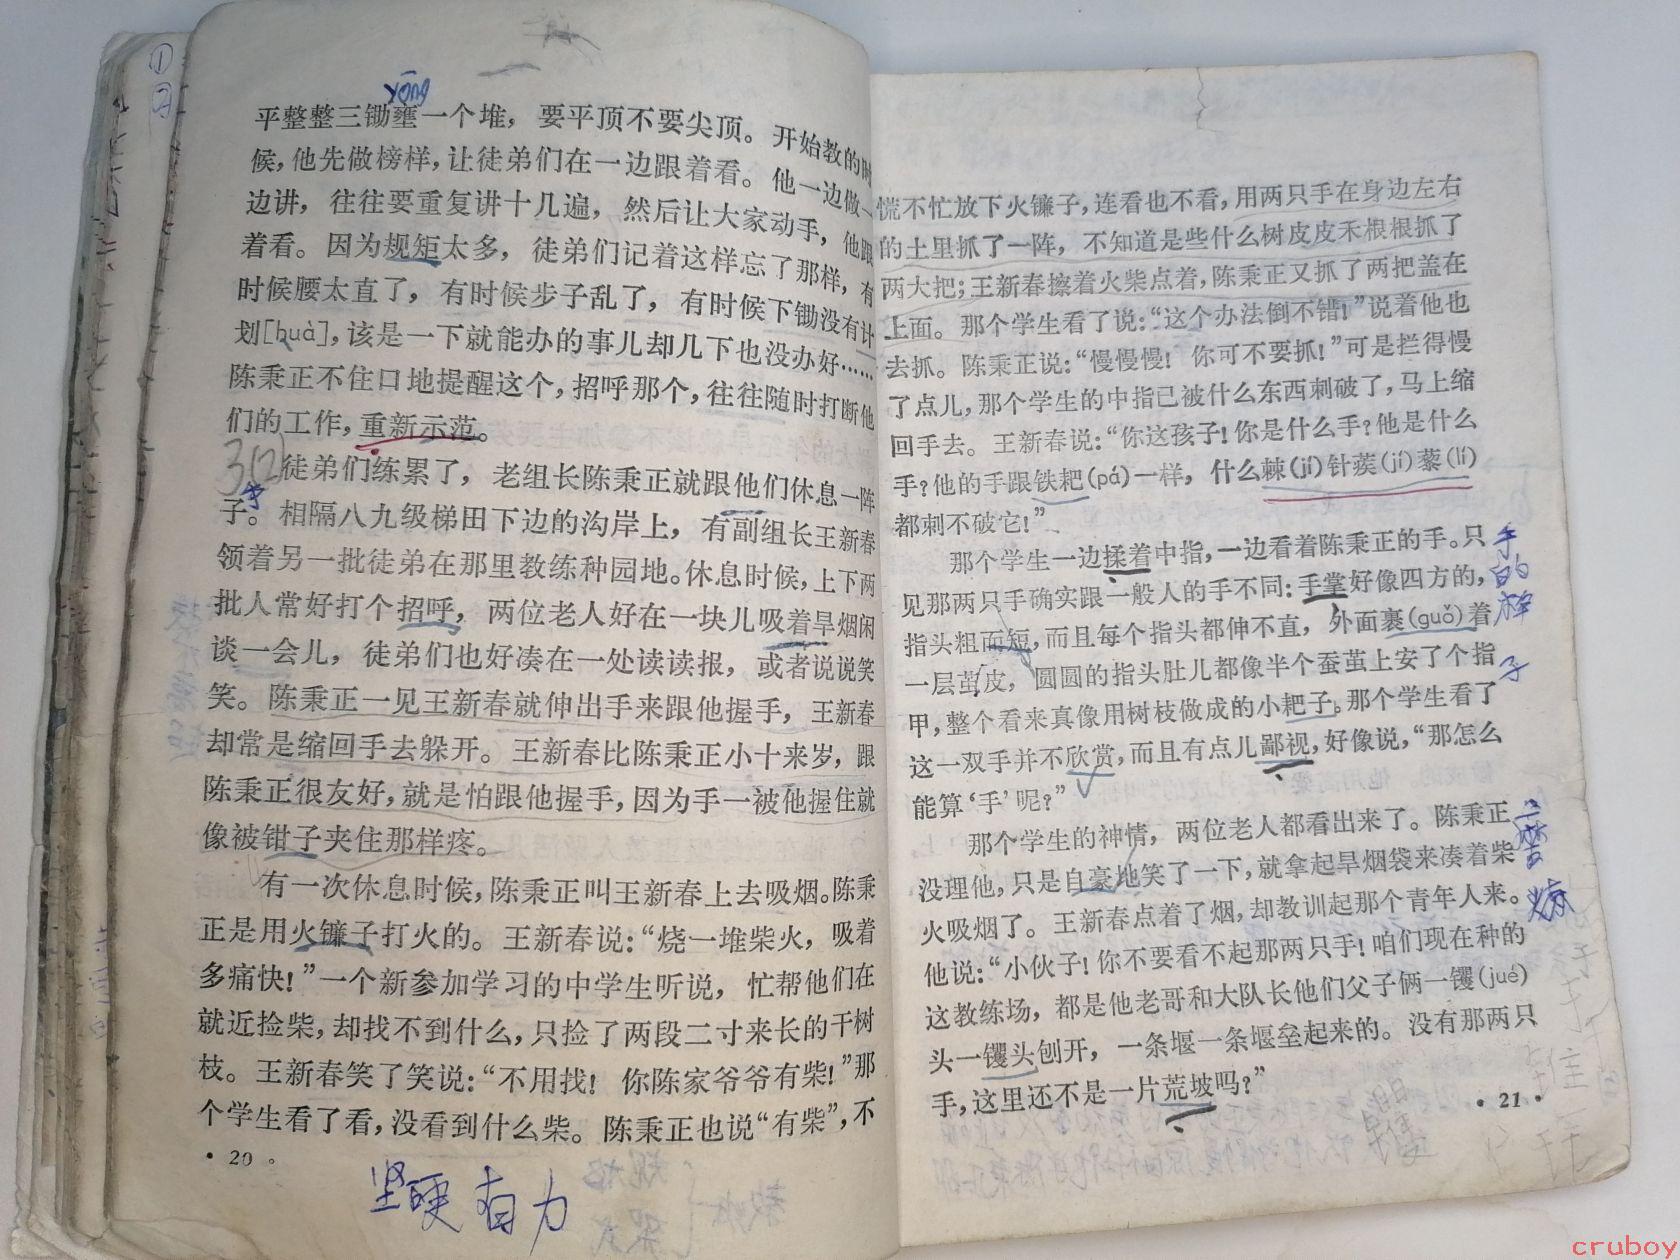 yōng
平整整三锄壅一个堆，要平顶不要尖顶。开始教的时
候，他先做榜样，让徒弟们在一边跟着看。他一边做一
边讲，往往要重复讲十几遍，然后让大家动手，他跟
着看。因为规矩太多，徒弟们记着这样忘了那样，有
时候腰太直了，有时候步子乱了，有时候下锄没有计
划[huà]，该是一下就能办的事儿却几下也没办好……
陈秉正不住口地提醒这个，招呼那个，往往随时打断他
们的工作，重新示范。
徒弟们练累了，老组长陈秉正就跟他们休息一阵
子。相隔八九级梯田下边的沟岸上，有副组长王新春
领着另一批徒弟在那里教练种园地。休息时候，上下两
批人常好打个招呼，两位老人好在一块儿吸着旱烟闲
谈一会儿，徒弟们也好凑在一处读读报，或者说说笑
笑。陈秉正一见王新春就伸出手来跟他握手，王新春
却常是缩回手去躲开。王新春比陈秉正小十来岁，跟
陈秉正很友好，就是怕跟他握手，因为手一被他握住就
像被钳子夹住那样疼。
有一次休息时候，陈秉正叫王新春上去吸烟。陈秉
正是用火镰子打火的。王新春说：“烧一堆柴火，吸着
多痛快！”一个新参加学习的中学生听说，忙帮他们在
就近捡柴，却找不到什么，只捡了两段二寸来长的干树
枝。王新春笑了笑说：“不用找！你陈家爷爷有柴！”那
个学生看了看，没看到什么柴。陈秉正也说“有柴”，不
·20。
坚硬有力
慌不忙放下火镰子，连看也不看，用两只手在身边左右
的土里抓了一阵，不知道是些什么树皮皮禾根根抓了
两大把；王新春擦着火柴点着，陈秉正又抓了两把盖在
上面。那个学生看了说：“这个办法倒不错！”说着他也
去抓。陈秉正说：“慢慢慢！你可不要抓！”可是拦得慢
了点儿，那个学生的中指已被什么东西刺破了，马上缩
回手去。王新春说：“你这孩子！你是什么手？他是什么
手？他的手跟铁耙(pá)一样，什么棘(jí)针蒺(jí)藜(lí)
都刺不破它！”
那个学生一边揉着中指，一边看着陈秉正的手。只
见那两只手确实跟一般人的手不同：手掌好像四方的，
指头粗而短，而且每个指头都伸不直，外面裹(guǒ)着
一层茧皮，圆圆的指头肚儿都像半个蚕茧上安了个指
甲，整个看来真像用树枝做成的小耙子。那个学生看了
这一双手并不欣赏，而且有点儿鄙视，好像说，“那怎么
能算‘手’呢？”
手的样子
那个学生的神情，两位老人都看出来了。陈秉正
没理他，只是自豪地笑了一下，就拿起旱烟袋来凑着柴
火吸烟了。王新春点着了烟，却教训起那个青年人来。
他说：“小伙子！你不要看不起那两只手！咱们现在种的
这教练场，都是他老哥和大队长他们父子俩一䦆(jué)
头一䦆头刨开，一条堰一条堰垒起来的。没有那两只
手，这里还不是一片荒坡吗？”
·21·
cruboy